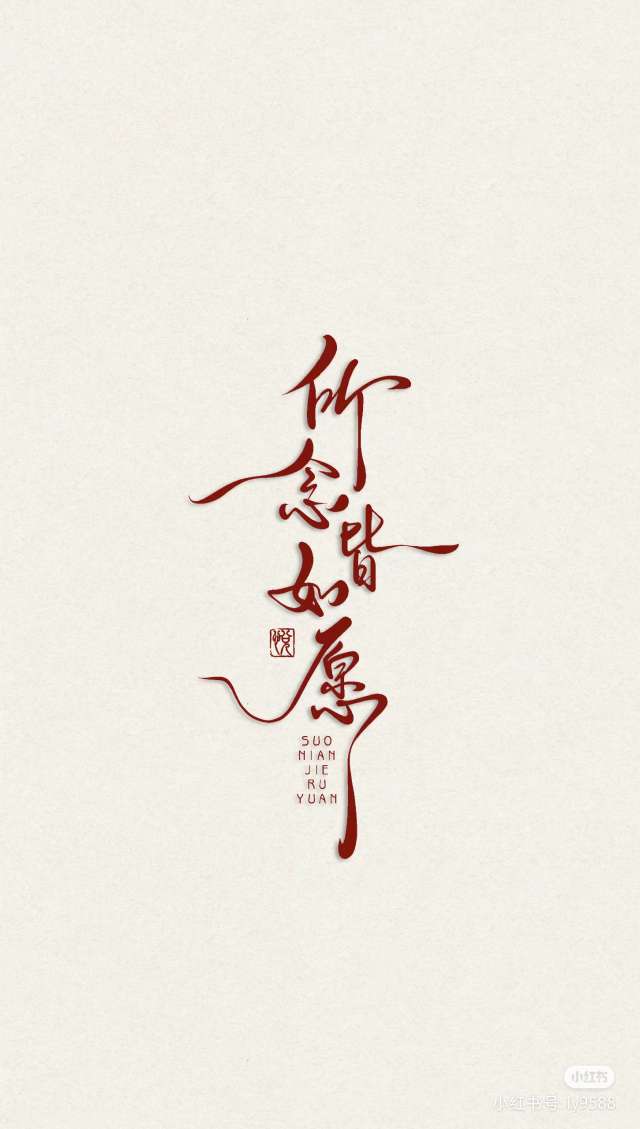 所念皆如愿
悦
SUO
NIAN
JIE
RU
YUAN
小红书
小红书号:ly9588